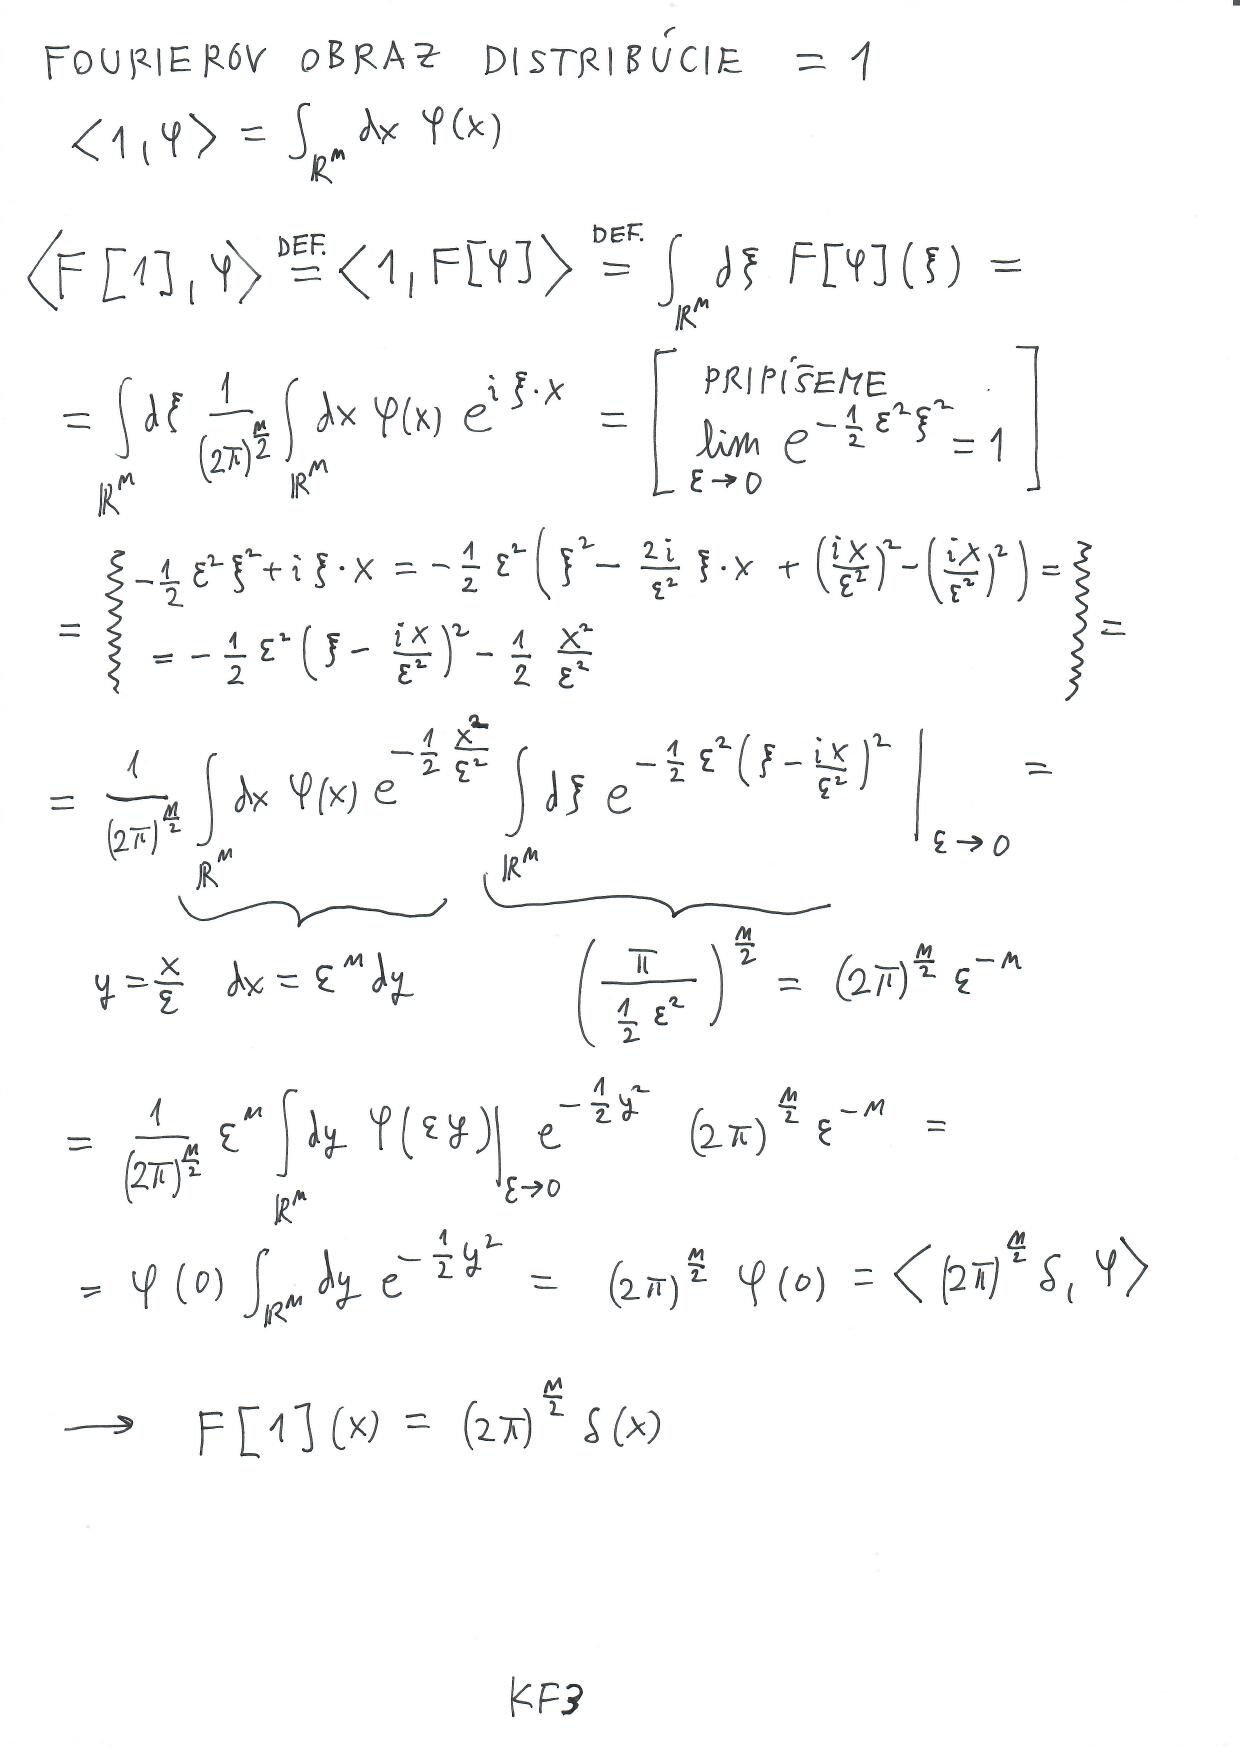 FOURIEROV OBRAZ DISTRIBÚCIE = 1
<1,φ> = ∫_{ℝ^n} dx φ(x)
<F[1],φ> =^{DEF.} <1,F[φ]> =^{DEF.} ∫_{ℝ^n} dξ F[φ](ξ) =
= ∫_{ℝ^n} dξ 1/(2π)^{n/2} ∫_{ℝ^n} dx φ(x) e^{iξ·x} = [PRIPÍŠEME lim_{ε→0} e^{-1/2 ε²ξ²} = 1]
= { -1/2 ε²ξ² + iξ·x = -1/2 ε² (ξ² - 2i/ε² ξ·x + (ix/ε²)² - (ix/ε²)²) =
= -1/2 ε² (ξ - ix/ε²)² - 1/2 x²/ε² } =
= 1/(2π)^{n/2} ∫_{ℝ^n} dx φ(x) e^{-1/2 x²/ε²} ∫_{ℝ^n} dξ e^{-1/2 ε² (ξ - ix/ε²)²} |_{ε→0} =
y = x/ε dx = ε^n dy (π/(1/2 ε²))^{n/2} = (2π)^{n/2} ε^{-n}
= 1/(2π)^{n/2} ε^n ∫_{ℝ^n} dy φ(εy)|_{ε→0} e^{-1/2 y²} (2π)^{n/2} ε^{-n} =
= φ(0) ∫_{ℝ^n} dy e^{-1/2 y²} = (2π)^{n/2} φ(0) = <(2π)^{n/2} δ, φ>
→ F[1](x) = (2π)^{n/2} δ(x)
KF3